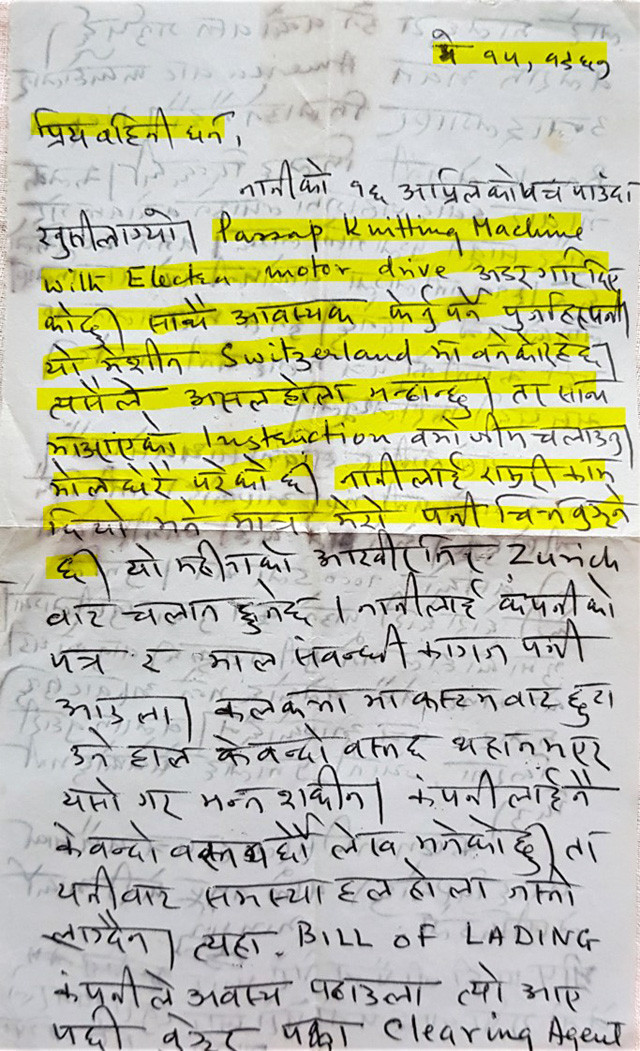 मे १५, १९६७
प्रिय वहिनी धर्म,
नानीको १६ अप्रिलको पत्र पाउंदा
खुसीलाग्यो। Passap Knitting Machine
with Electra motor drive अडर गरिदिए
कोछु। साथै आवस्यक केही पुर्जाहरुपनी
यो मेशीन Switzerland मा वनेकोरहेछ।
त्यसैले असल होला भन्ठान्छु। तर साथ
माआएको Instruction वमोजीम चलाउनु।
मोल धेरै परेको छ। नानीलाई राम्ररी काम
दियो भने मात्र मेरो पनी चित्त वुझ्ने
छ। यो महीनाको आखीरतिर Zurich
वाट चलान हुनेछ। नानीलाई कंपनीको
पत्र र माल संवन्धी कागज पनी
आउला। कलकत्ता मा कस्टमवाट छुटा
उने हाल के वन्दो वस्तछ थहानभएर
यसो गर भन्न शकीन। कंपनीलाई नै
के वन्दो वस्त लेख भनेको छु। तर
यतीवाट समस्या हल होला जस्तो
लाग्दैन। त्यहा BILL OF LADING
कंपनीले अवस्य पठाउला त्यो आए
पछी पक्का Clearing Agent